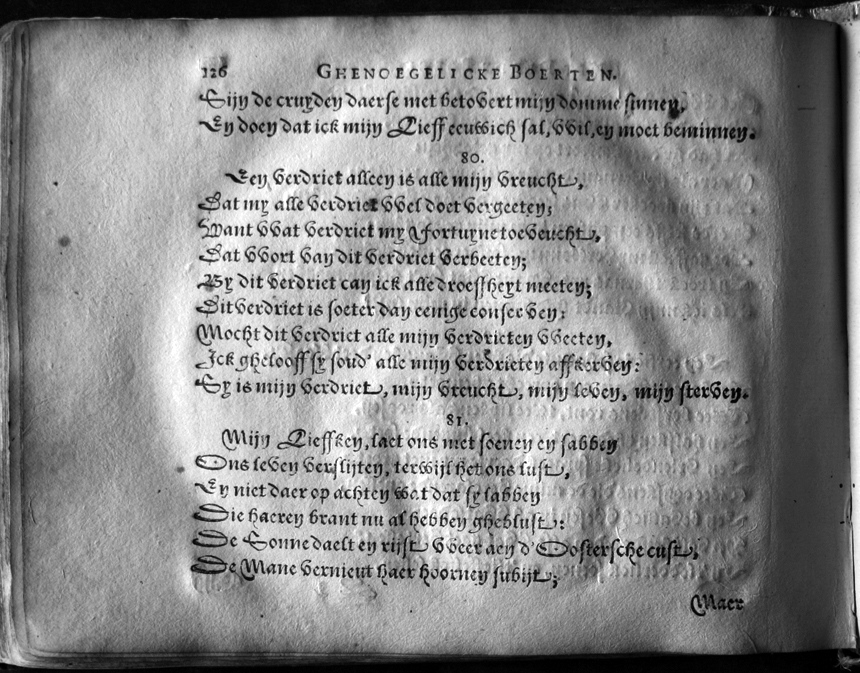 126 GHENOEGELICKE BOERTEN.
Sijn de cruyden daerse met betovert mijn domme sinnen,
En doen dat ick mijn Lieff eeuwich sal, wil, en moet beminnen.
80.
Een verdriet alleen is alle mijn vreucht,
Dat my alle verdriet wel doet vergeeten;
Want wat verdriet my Fortuyne toeveucht,
Dat wort van dit verdriet verbeeten;
By dit verdriet can ick alle droeffheyt meeten;
Dit verdriet is soeter dan eenige conserven:
Mocht dit verdriet alle mijn verdrieten weeten,
Ick ghelooff sy soud' alle mijn verdrieten affkerven:
Sy is mijn verdriet, mijn vreucht, mijn leven, mijn sterven.
81.
Mijn Lieffken, laet ons met soenen en sabben
Ons leven verslijten, terwijl het ons lust,
En niet daer op achten wat dat sy labben
Die haeren brant nu al hebben gheblust:
De Sonne daelt en rijst weer aen d'Oostersche cust,
De Mane vernieut haer hoornen subijt;
Maer